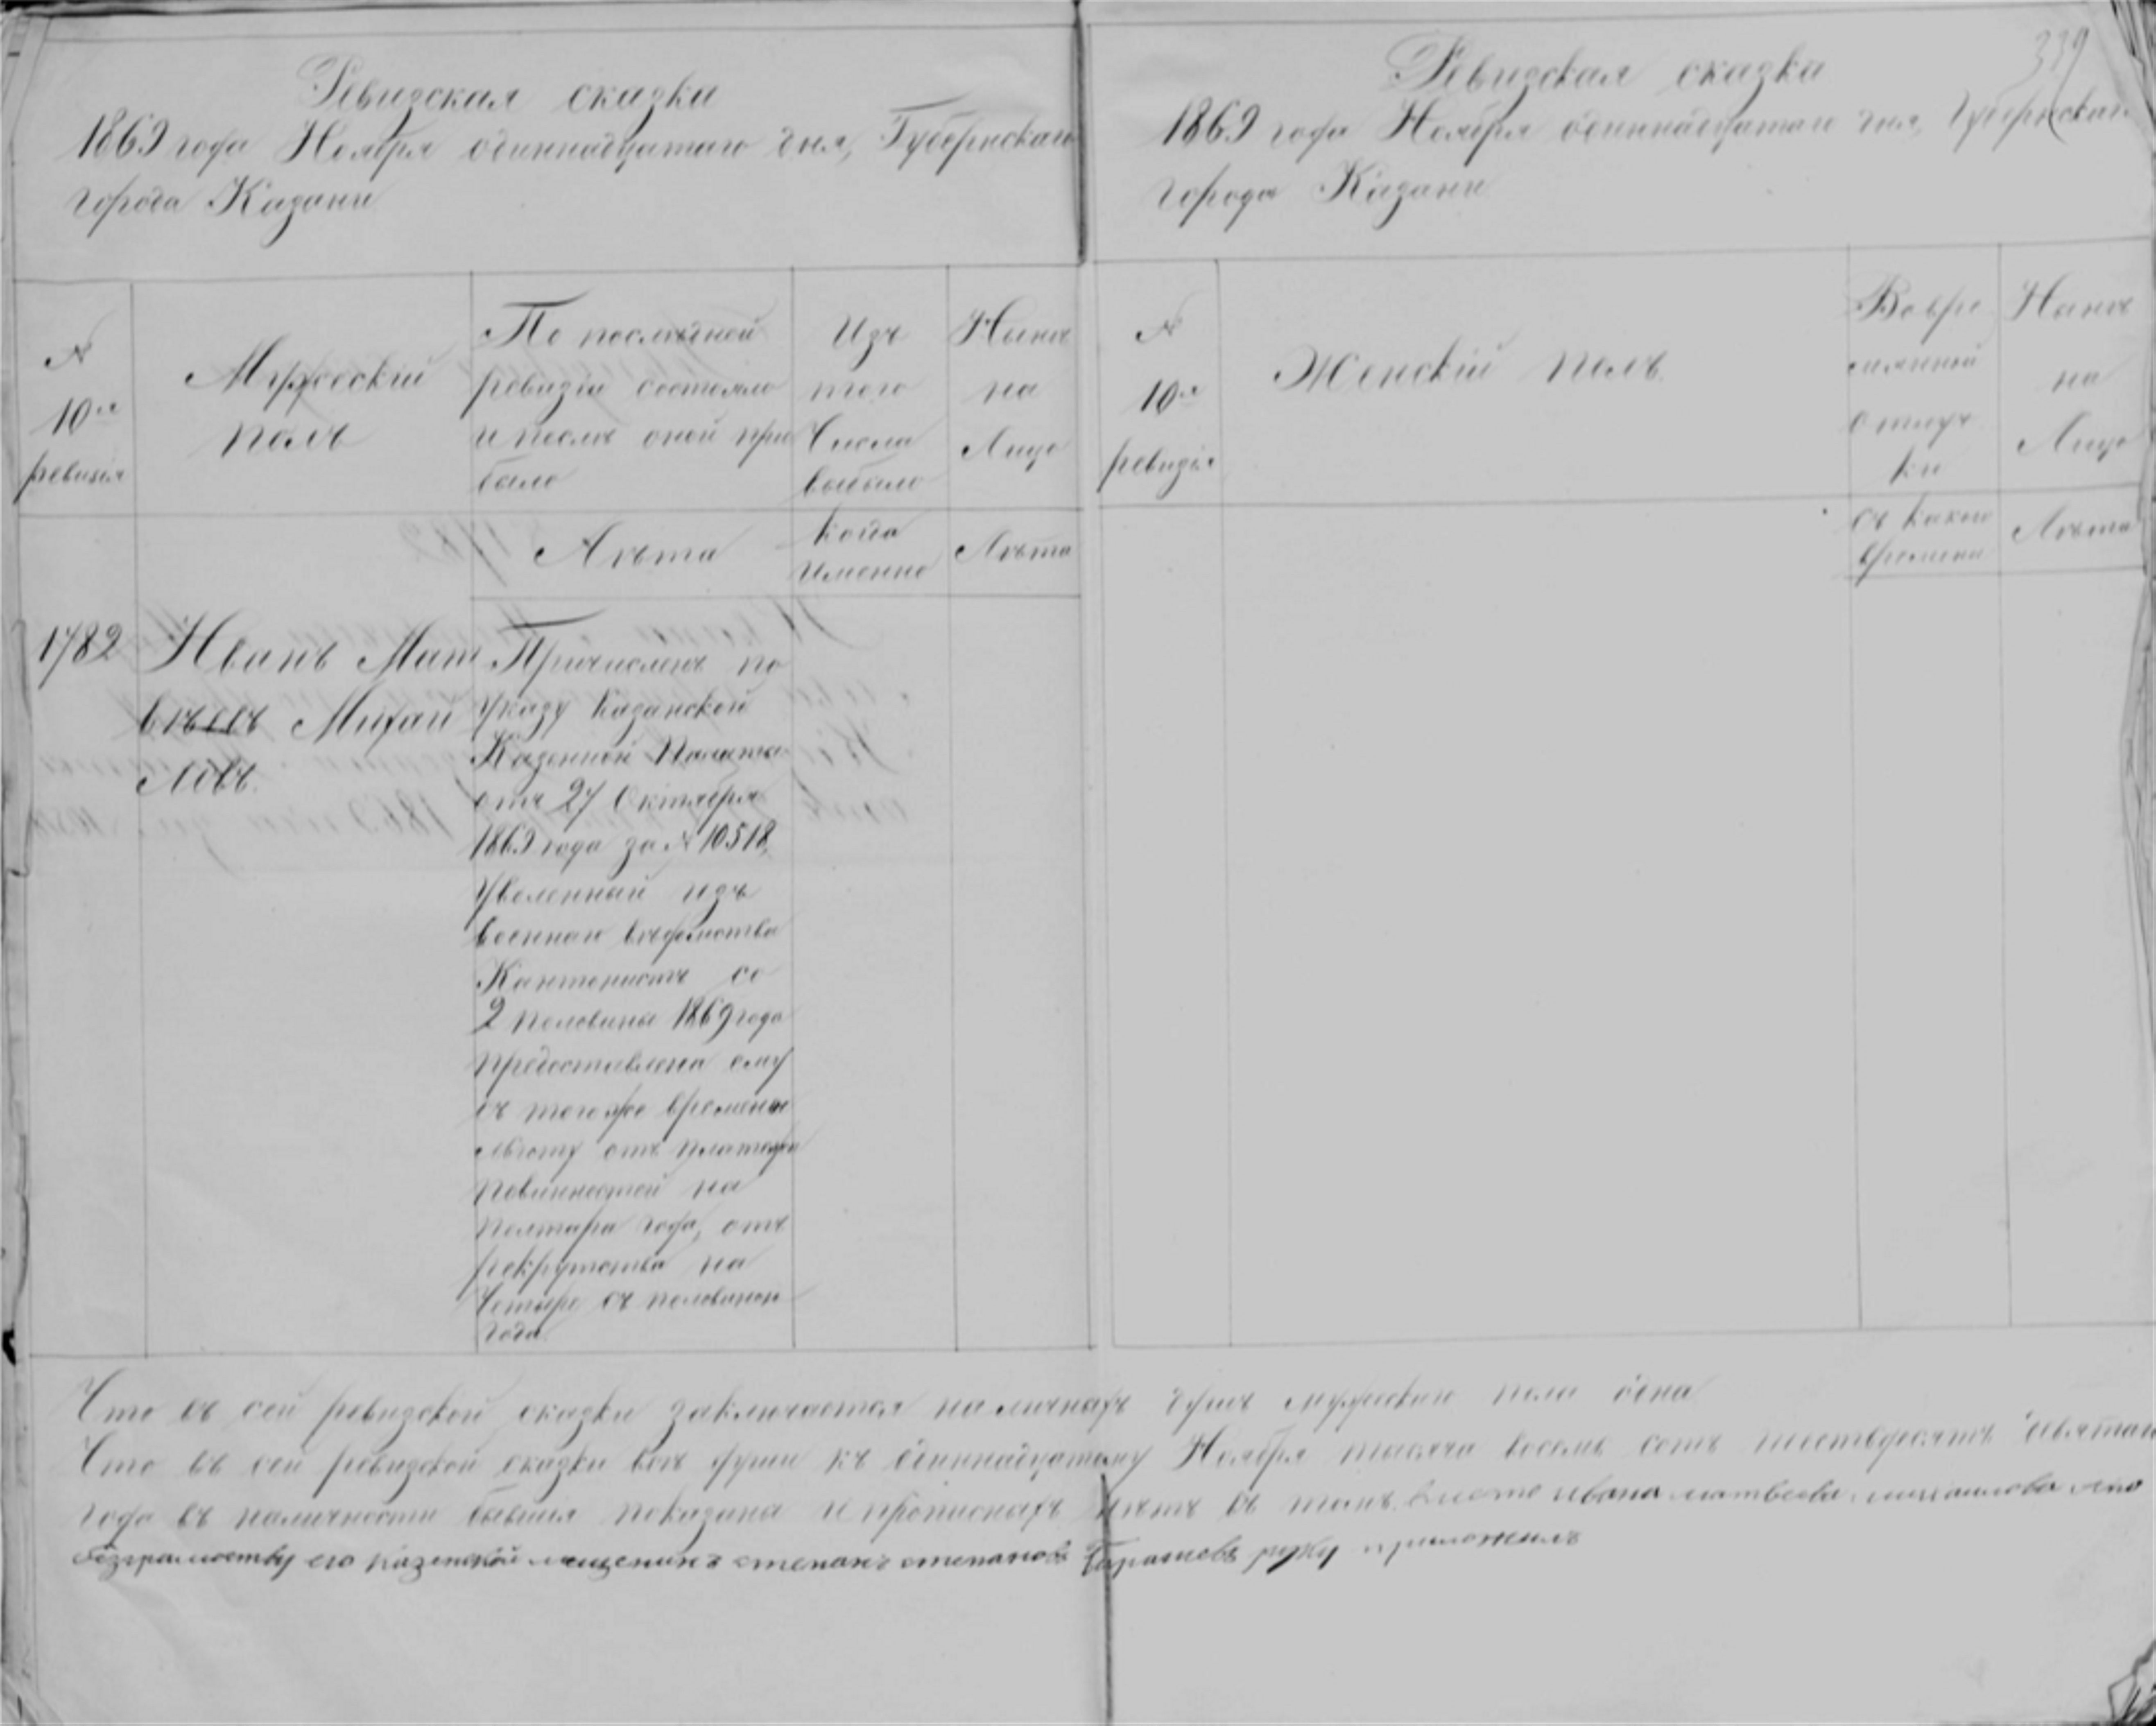 Ревизская сказка
1869 года Ноября одиннадцатаго дня, Губернскаго
города Казани
№
10я
ревизія
Мужескій
полъ
По последней
ревизіи состояло
и после оной при
было
Изъ
того
Числа
выбыло
Ныне
на
Лицо
Лѣта
когда
именно
Лѣта
1782
Иванъ Мат
вѣевъ Михай
ловъ.
Причисленъ по
указу Казанской
Казенной Палаты
отъ 27 Октября
1869 года за № 10518,
Уволенный изъ
военнаго вѣдомства
Кантонистъ со
2 половины 1869 года
предоставлена ему
съ того же времени
льготу отъ платежа
повинностей на
полтара года, отъ
рекрутства на
Четыре съ половиной
года.
339
Ревизская сказка
1869 года Ноября одиннадцатаго дня, Губернскаго
города Казани
№
10я
ревизія
Женскій полъ.
Во вре
мянной
отлуч
ки
Ныне
на
Лицо
съ какого
времени
Лѣта
Что въ сей ревизской сказки заключается наличныхъ душъ мужеский пола одна
Что въ сей ревизской сказки все души къ одиннадцатому Ноября тысяча восемь сотъ шестьдесятъ девятаго
года въ наличности бывшия показаны и прописныхъ нѣтъ въ томъ вместо ивана матвеева михаилова по
безграмотству его казанской мещенинъ степанъ степановъ руку приложилъ